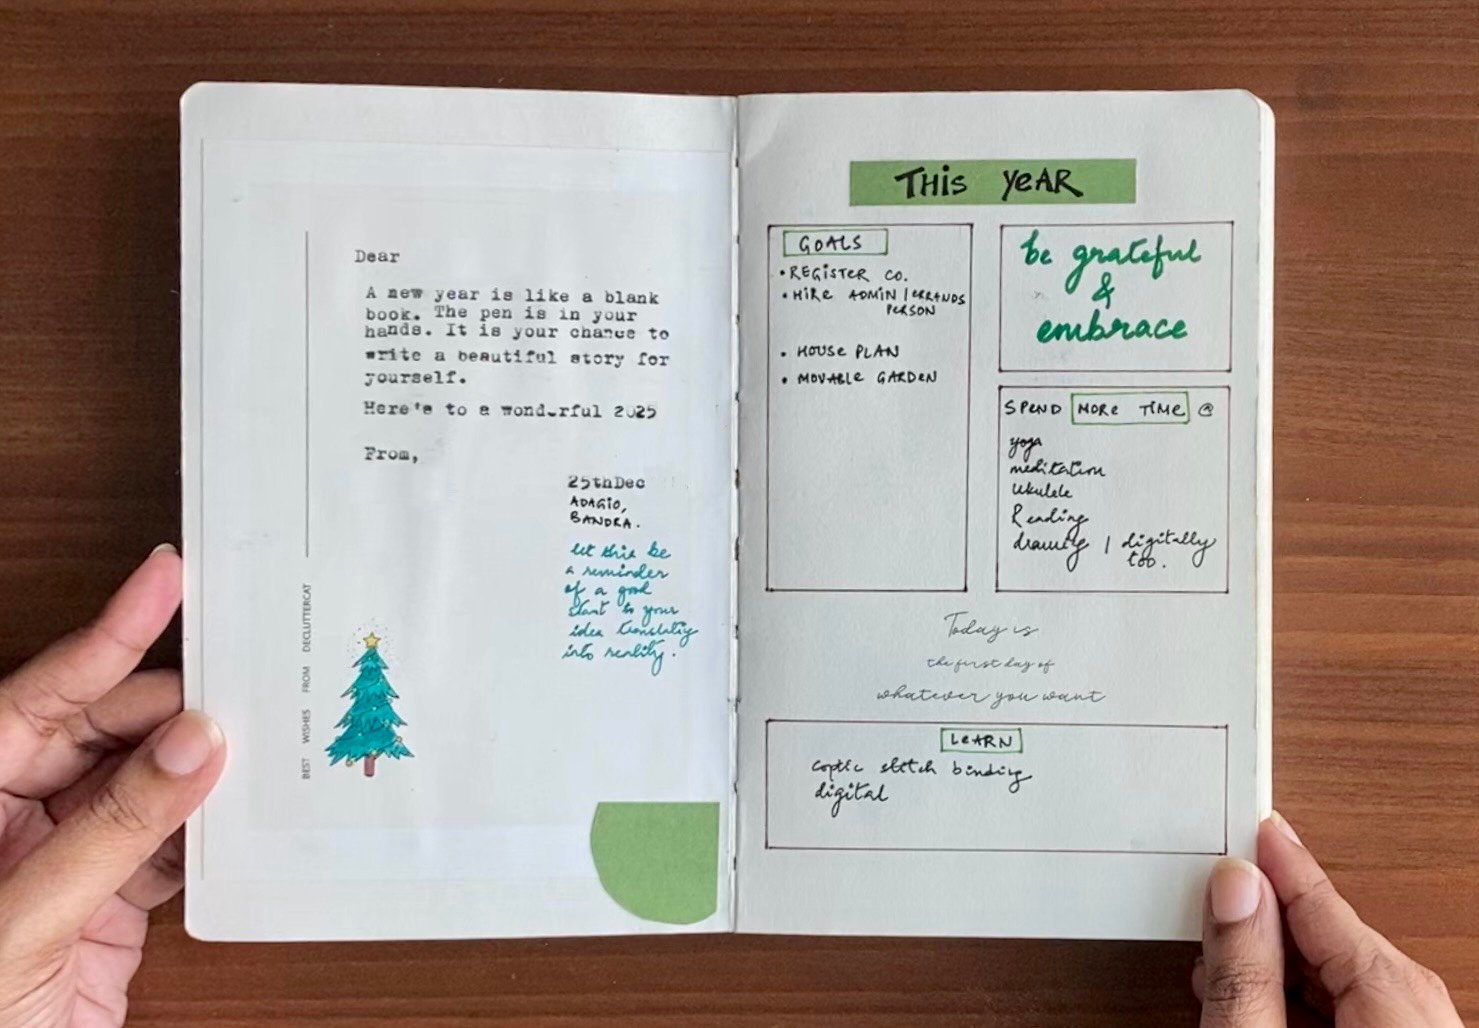 Dear
A new year is like a blank
book. The pen is in your
hands. It is your chance to
write a beautiful story for
yourself.
Here's to a wonderful 2025
From,
25thDec
ADAGIO,
BANDRA.
let this be
a reminder
of a good
start to your
idea translating
into reality.
BEST WISHES FROM DECLUTTERCAT
THIS YEAR
GOALS
• REGISTER CO.
• HIRE ADMIN / ERRANDS
PERSON
• HOUSE PLAN
• MOVABLE GARDEN
be grateful
&
embrace
SPEND MORE TIME @
yoga
meditation
Ukulele
Reading
drawing / digitally
too.
Today is
the first day of
whatever you want
LEARN
coptic stitch binding
digital